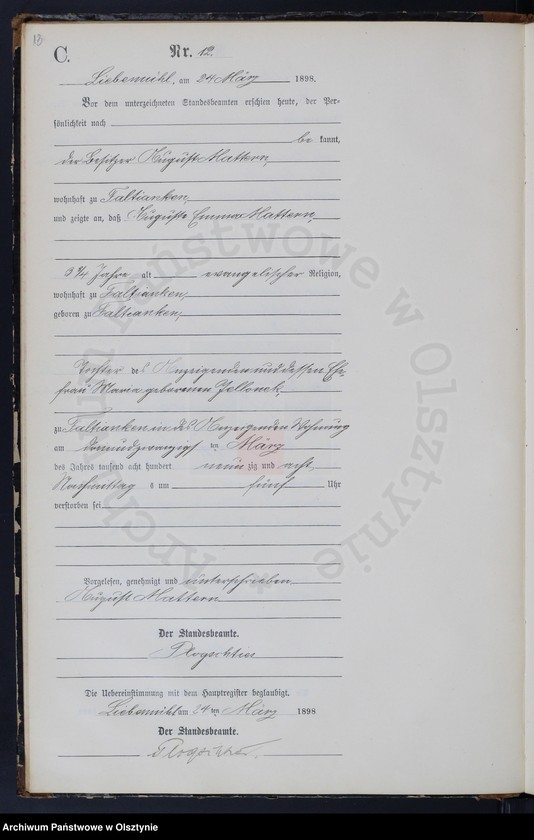 13
C.
Nr. 12.
Liebemühl, am 24 März 1898.
Vor dem unterzeichneten Standesbeamten erschien heute, der Per-
sönlichkeit nach
be kannt,
der Besitzer August Mattern,
wohnhaft zu Faltianken,
und zeigte an, daß Auguste Emma Mattern,
3 3/4 Jahre alt evangelischer Religion,
wohnhaft zu Faltianken,
geboren zu Faltianken,
Tochter des Anzeigenden und dessen Ehe-
frau Maria geborenen Jellonek,
zu Faltianken in des Anzeigenden Wohnung
am dreiundzwanzigsten März
des Jahres tausend acht hundert neun zig und acht,
Nachmittag s um fünf Uhr
verstorben sei
Vorgelesen, genehmigt und unterschrieben
August Mattern
Der Standesbeamte.
Die Uebereinstimmung mit dem Hauptregister beglaubigt.
Liebemühl am 24 ten März 1898
Der Standesbeamte.
Archiwum Państwowe w Olsztynie
Archiwum Państwowe w Olsztynie